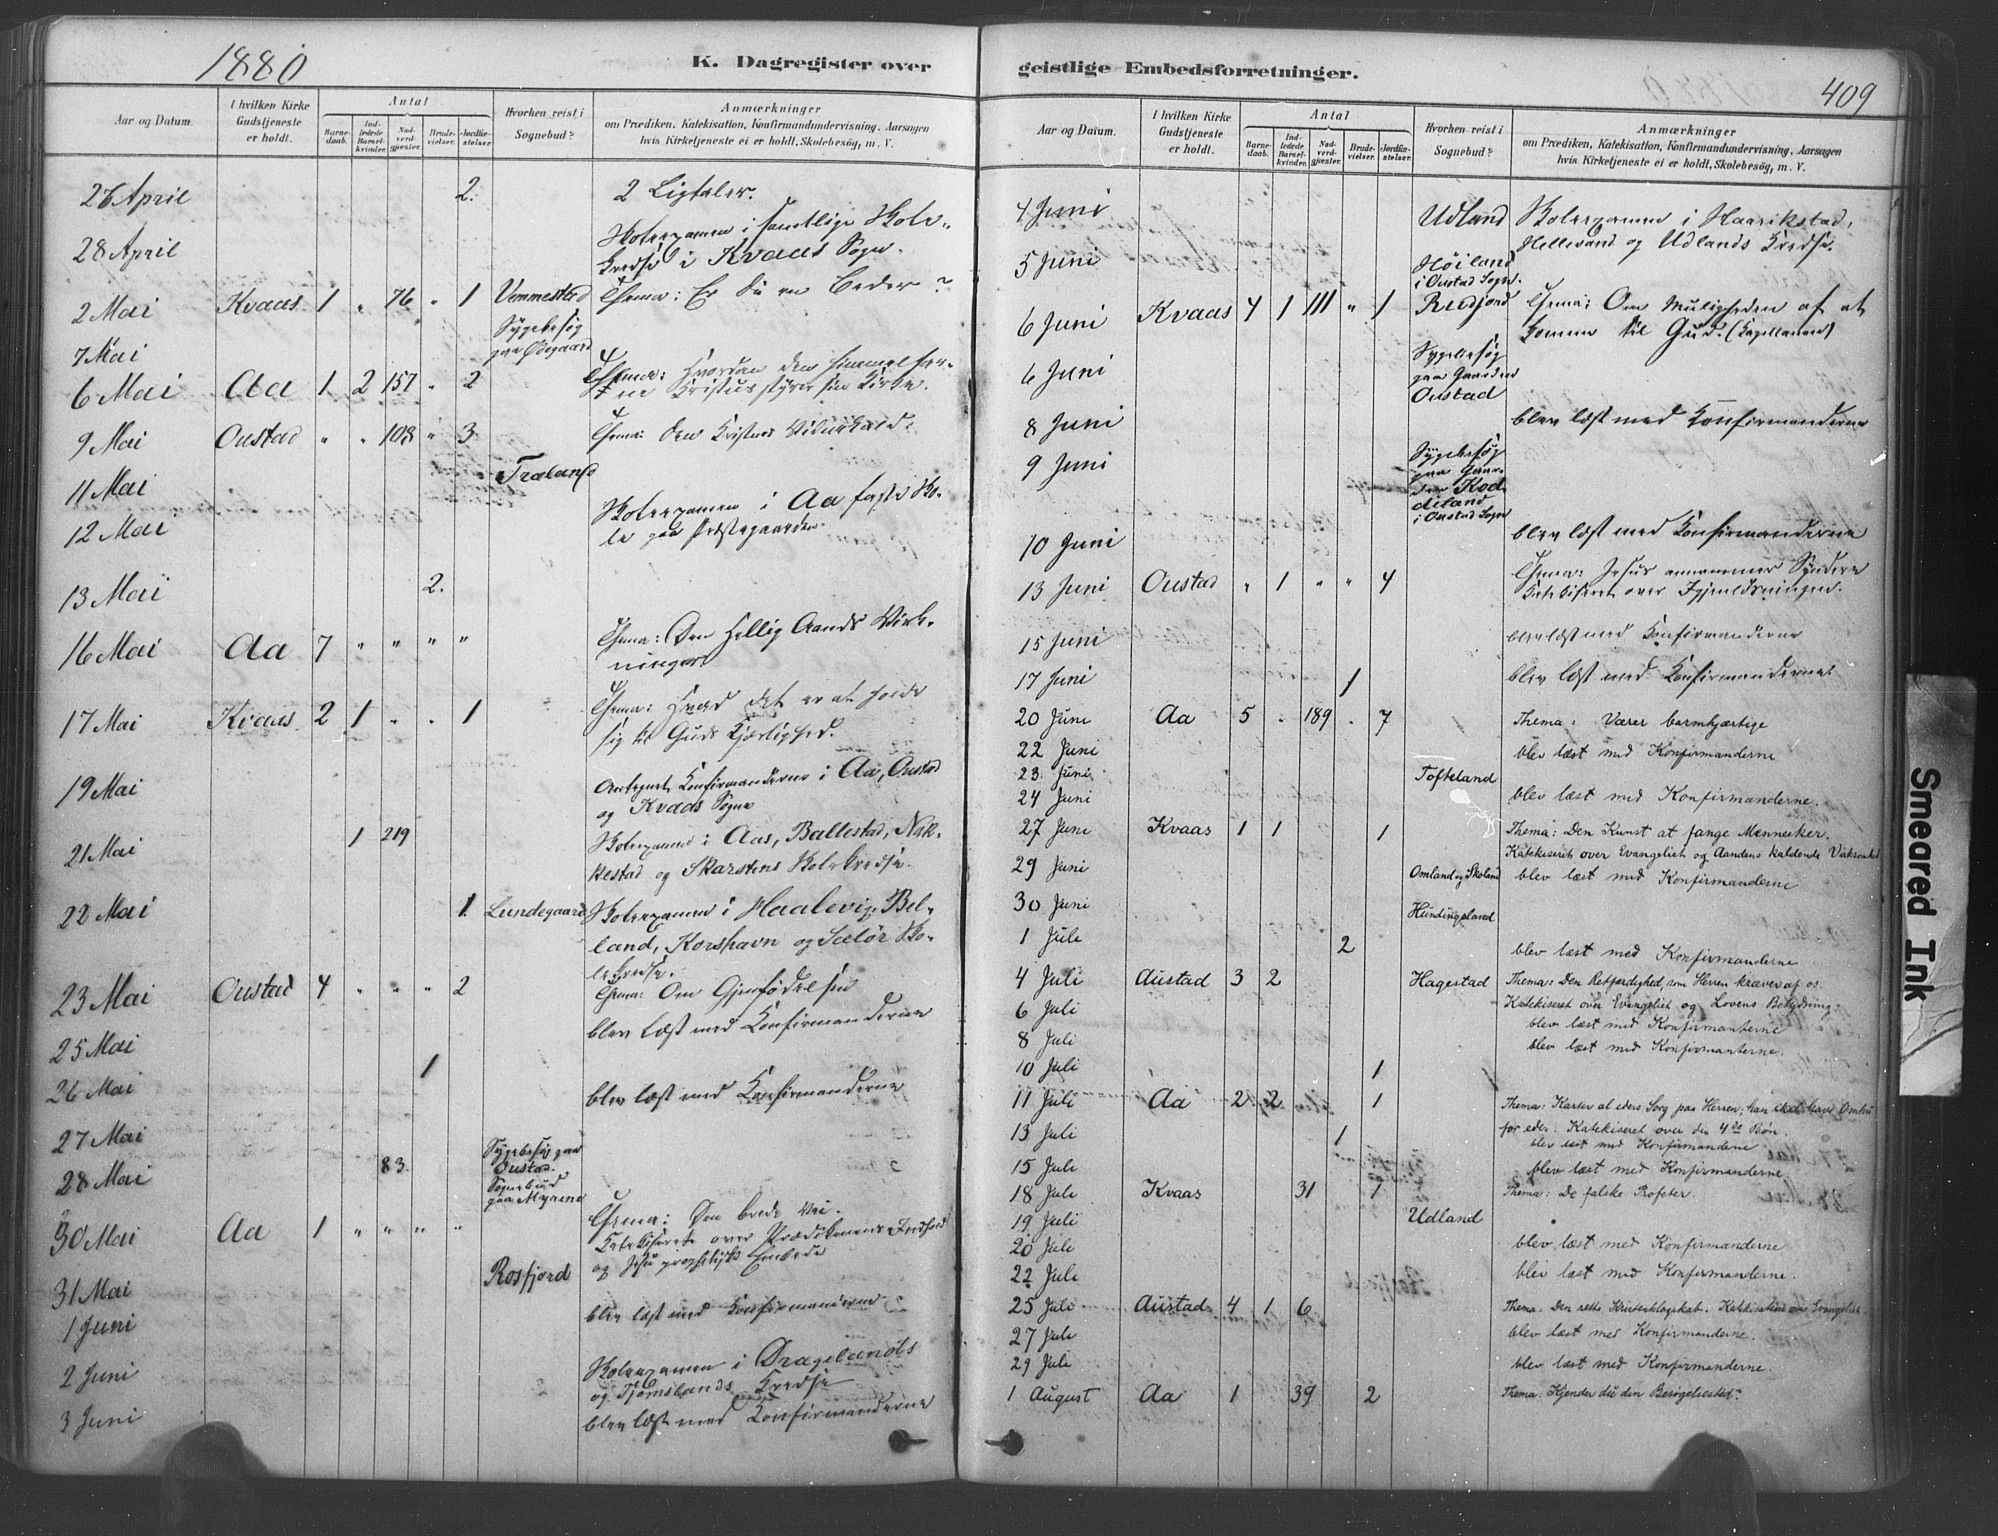 1880
K. Dagregister over
Aar og Datum.
I hvilken Kirke Gudstjeneste er holdt.
Antal
Barnedaab.
Indledede Barselkvinder.
Nadverdgjester.
Brudevielser.
Jordfæstelser.
Hvorhen reist i Sognebud?
Anmærkninger
om Prædiken, Katekisation, Konfirmandundervisning, Aarsagen
hvis Kirketjeneste ei er holdt, Skolebesög, m. V.
26 April 2. 2 Ligtaler.
28 April Skoleexamen i samtlige Skole-
kredse i Kvaas Sogn.
2 Mai Kvaas 1 " 76 " 1 Vemmestad Thema: Er du en Beder?
7 Mai Sygebesøg
paa Ødegaard
6 Mai Aa 1 2 157 " 2 Thema: Hvordan den himmelfar-
ne Kristus styrer sin Kirke.
9 Mai Oustad " " 108 " 3 Thema: Den Kristnes Vidnekald.
11 Mai Træland
12 Mai Skoleexamen i Aa faste Sko-
le paa Præstegaarden.
13 Mai 2.
16 Mai Aa 7 " " " " Thema: Den Hellig Aands Virk-
ninger
17 Mai Kvaas 2 1 " " 1 Thema: Hvad det er at holde
sig til Guds Kjærlighed.
19 Mai Antegnet Konfirmanderne i Aa, Oustad
og Kvaas Sogne
21 Mai 1 219 Skoleexamen i Aas, Ballestad, Nak-
kestad og Skarstens Skolekredse.
22 Mai 1. Lundegaard Skoleexamen i Haalevig, Bel-
land, Korshavn og Sælør Sko-
lekredse.
23 Mai Oustad 4 " " " 2 Thema: Om Gjenfødelsen
25 Mai blev læst med Konfirmanderne
26 Mai 1
27 Mai blev læst med Konfirmanderne
28 Mai 83. Sygebesøg paa
Oustad.
Sognebud
paa Myrene
30 Mai Aa 1 " " " " Thema: Den brede Vei.
Katekiserte over Prædikenens Indhold
og Jesu prophetiske Embede
31 Mai Rosfjord
1 Juni blev læst med Konfirmanderne
2 Juni Skoleexamen i Dragelands
og Tjømslands Kredse
3 Juni blev læst med Konfirmanderne
geistlige Embedsforretninger.
409
Aar og Datum.
I hvilken Kirke Gudstjeneste er holdt.
Antal
Barnedaab.
Indledede Barselkvinder.
Nadverdgjester.
Brudevielser.
Jordfæstelser.
Hvorhen reist i Sognebud?
Anmærkninger
om Prædiken, Katekisation, Konfirmandundervisning, Aarsagen
hvis Kirketjeneste ei er holdt, Skolebesög, m. V.
4 Juni Udland Skoleexamen i Haarikstad,
Hellevand og Udlands Kredse.
5 Juni Høiland
i Oustad Sogn.
6 Juni Kvaas 4 1 111 " 1 Thema: Om Muligheden af at
komme til Gud. (Kapellanen)
6 Juni Sygebesøg
paa Gaarden
Oustad
8 Juni blev læst med Konfirmanderne
9 Juni Sygebesøg
paa Gaar-
den Kod-
deland
i Oustad Sogn
10 Juni blev læst med Konfirmanderne
13 Juni Oustad " 1 " " 4 Thema: Jesus annammer Syndere
Katekiseret over Igjenløsningen.
15 Juni blev læst med Konfirmanderne
17 Juni 1 blev læst med Konfirmanderne.
20 Juni Aa 5 " 189 " 7 Thema: Værer barmhjærtige
22 Juni blev læst med Konfirmanderne
23 Juni Tofteland
24 Juni blev læst med Konfirmanderne.
27 Juni Kvaas 1 1 1 Thema: Den Kunst at fange Mennesker.
Katekiseret over Evangeliet og Aandens kaldende Virksomhed
29 Juni Omland og Skoland blev læst med Konfirmanderne
30 Juni Hundingsland
1 Juli 2 blev læst med Konfirmanderne
4 Juli Austad 3 2 Hagestad Thema: Den Retfærdighed, som Herren kræver af os.
Katekiseret over Evangeliet og Lovens Betydning.
6 Juli blev læst med Konfirmanterne
8 Juli blev læst med Konfirmanterne.
10 Juli 1
11 Juli Aa 2 2 1 Thema: Kaster al eders Sorg paa Herren, han skal have Omhu
for eder. Katekiseret over den 4de Bøn.
13 Juli 1 blev læst med Konfirmanderne
15 Juli blev læst med Konfirmanderne
18 Juli Kvaas 31 1 Thema: De falske Profeter.
19 Juli Udland
20 Juli blev læst med Konfirmanderne
22 Juli blev læst med Konfirmanderne.
25 Juli Austad 4 1 6 Thema: Den rette Kristenklogskab. Katekisation over Evangeliet.
27 Juli blev læst med Konfirmanderne.
29 Juli blev læst med Konfirmanderne.
1 August Aa 1 39 2 Thema: Kjender du din Besøgelsestid?
Smeared Ink